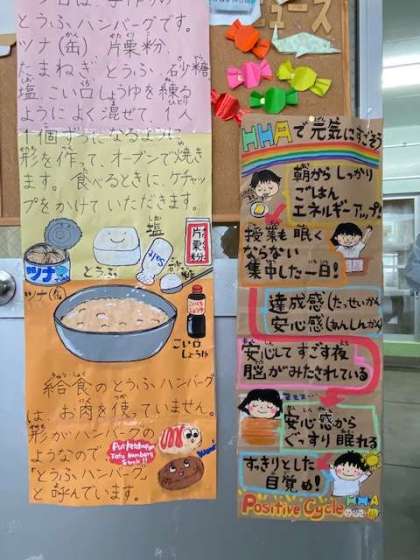 今日は、手作りの
とうふハンバーグです。
ツナ(缶)片栗粉、
たまねぎ、とうふ、砂糖
塩、こい口しょうゆを練る
ようによく混ぜて、1人
1個ずつになるように
形を作って、オーブンで焼き
ます。食べるときに、ケチャッ
プをかけていただきます。
塩
片栗粉
ツナ
とうふ
ツナ(缶)
こい口
しょうゆ
給食のとうふハンバーグ
は、お肉を使っていません。
形がハンバーグの
ようなので
「とうふハンバーグ」
と呼んでいます。
ュース
HHAで元気にすごそう
朝からしっかり
ごはん
エネルギーアップ!
授業も眠く
ならない
集中した一日!
達成感(たっせいかん
安心感(あんしんかん
安心してすごす夜
脳がみたされている
安心感から
ぐっすり眠れる
すっきりとした
目覚め!
Positive Cycle HHA